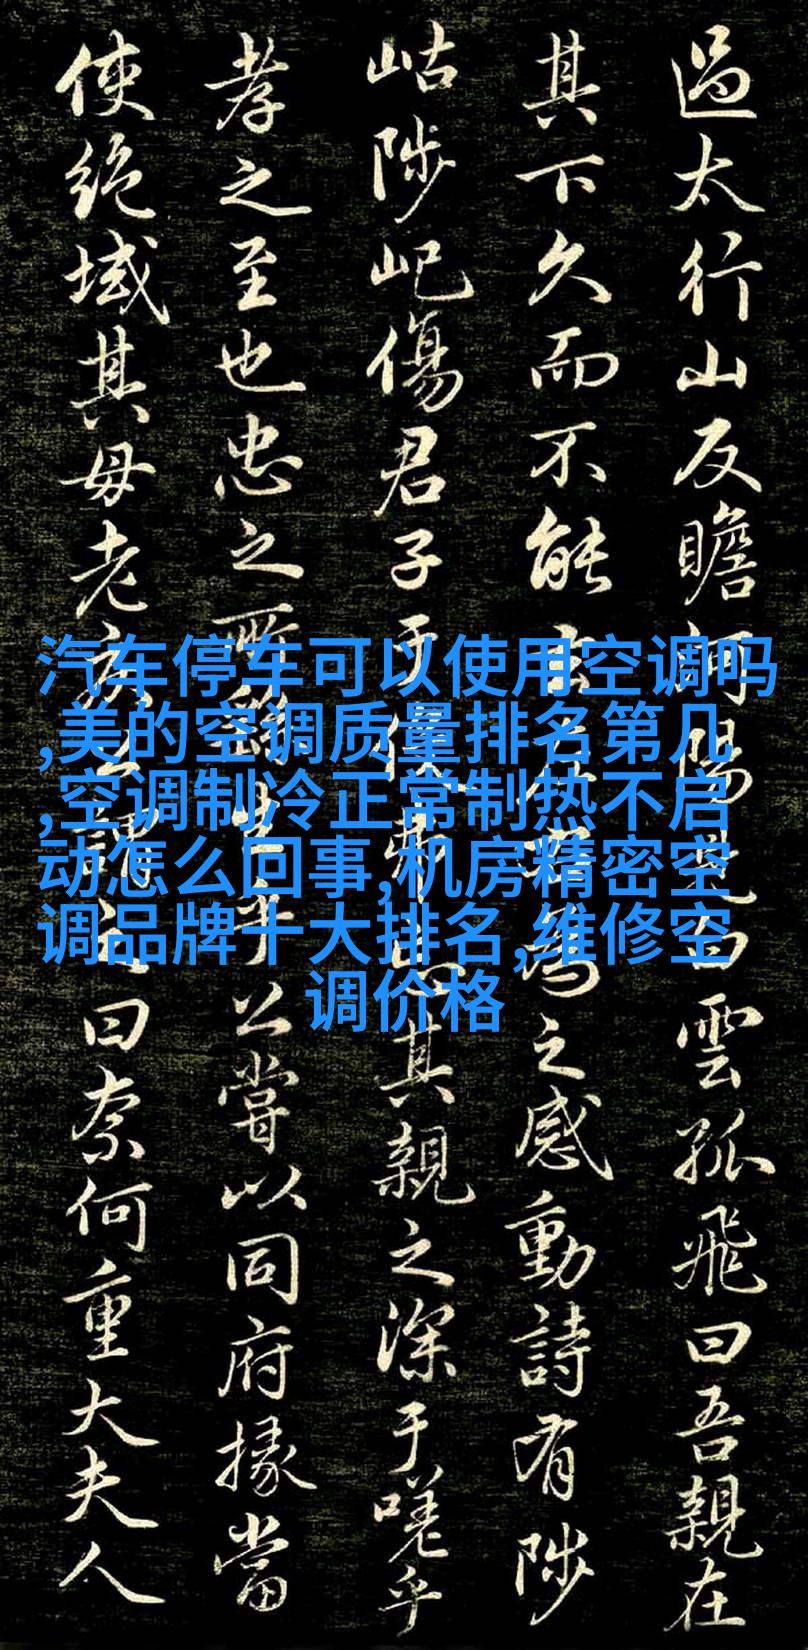 過太行山反瞻河陽見白雲孤飛曰吾親在
其下久而不能去左右為之感動詩有陟
岵陟屺傷君子于役弗忘其親之深于嗟乎
孝之至也忠之所繇生乎公嘗以同府掾當
使絕域其母老疾公謂之曰奈何重大夫人
汽车停车可以使用空调吗
,美的空调质量排名第几
,空调制冷正常制热不启
动怎么回事,机房精密空
调品牌十大排名,维修空
调价格